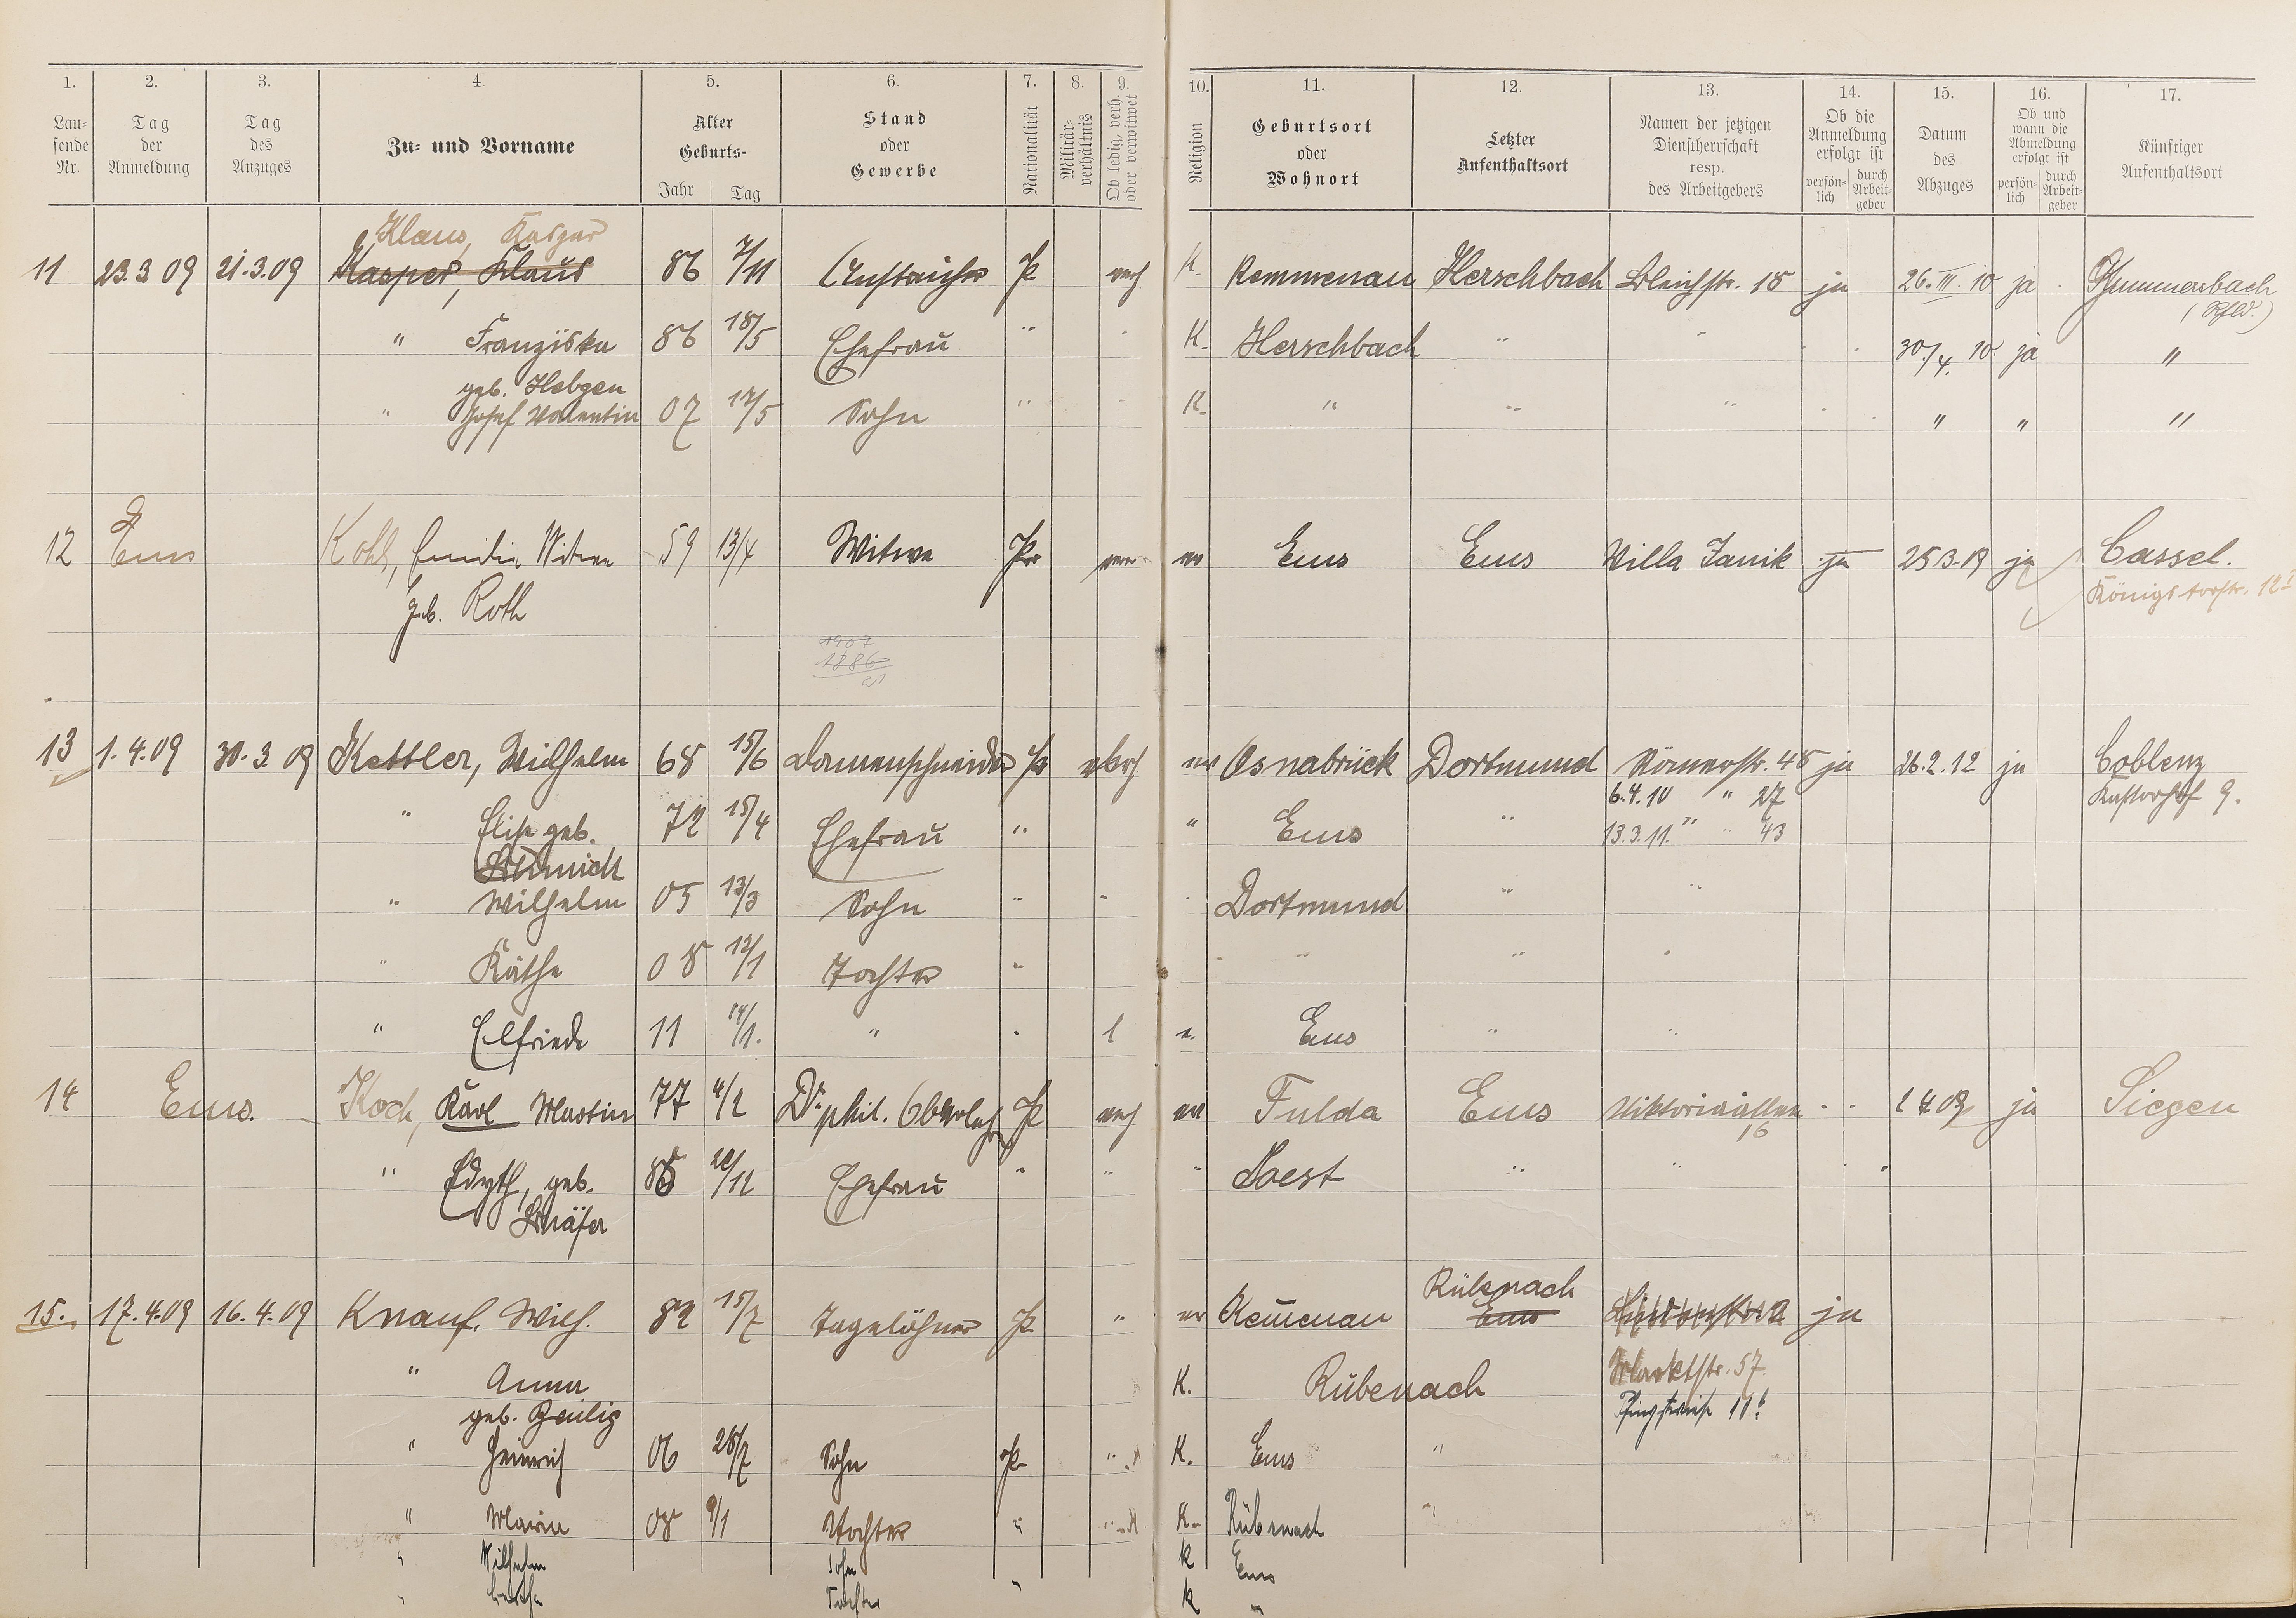 1. 2. 3. 4. 5. 6. 7. 8. 9. 10. 11. 12. 13. 14. 15. 16. 17.
Lau-
fende
Nr.
Tag
der
Anmeldung
Tag
des
Anzuges
Zu- und Vorname
Alter
Geburts-
Jahr Tag
Stand
oder
Gewerbe
Nationalität
Militär-
verhältnis
Ob ledig, verh.
oder verwitwet
Religion
Geburtsort
oder
Wohnort
Letzter
Aufenthaltsort
Namen der jetzigen
Dienstherrschaft
resp.
des Arbeitgebers
Ob die
Anmeldung
erfolgt ist
persön-
lich
durch
Arbeit-
geber
Datum
des
Abzuges
Ob und
wann die
Abmeldung
erfolgt ist
persön-
lich
durch
Arbeit-
geber
Künftiger
Aufenthaltsort
Klaus, Kaspar
11 23.3 09 21.3.09 Kasper, Klaus 86 7/11 Anstreicher P verh K. Kemmenau Herschbach Bleichstr. 18 ja 26. III. 10 ja Gummersbach
" Franziska 86 18/5 Ehefrau " K. Herschbach " 30./4. 10. ja "
geb. Hebgen
" Josef Valentin 07 17/5 Sohn " K. " " " " " "
12 Ems Kohl, Emilie Witwe 59 13/4 Witwe Pr ev Ems Ems Villa Janik ja 25.3.09 ja Cassel.
geb. Roth Königstorstr. 12 I
1907
1886
21
13 1.4.09 30.3 09 Kettler, Wilhelm 68 15/6 Damenschneider Pr verh ev Osnabrück Dortmund Römerstr. 48 ja 26.2.12 ja Coblenz
6.4.10 " 27 Kastorhof 9.
" Elise geb. 72 15/4 Ehefrau " " Ems " 13.3.11. " " 43
Schmidt
" Wilhelm 05 13/3 Sohn " Dortmund " "
" Käthe 08 12/1 Tochter " " " "
" Elfriede 11 14/1. " " l e. Ems " "
14 Ems. Koch, Karl Martin 77 4/2 Dr phil. Oberlehr P verh ev Fulda Ems Viktoriaallee 16 " " 1.4.09 ja Siegen
" Edyth, geb. 85 12 Ehefrau " " " Soest " "
Schäfer
15. 17.4.09 16.4.09 Knauf. Wilh. 82 15/7 Tagelöhner P " ev Kem̅enau Rübenach ja
Ems
" Anna K. Rübenach Marktstr. 57
geb. Zeilig
" Heinrich 06 28/7 Sohn P K. Ems "
" Maria 08 9/1 Tochter " K. Rübenach "
" Wilhelm Sohn K Ems
" Tochter " K "